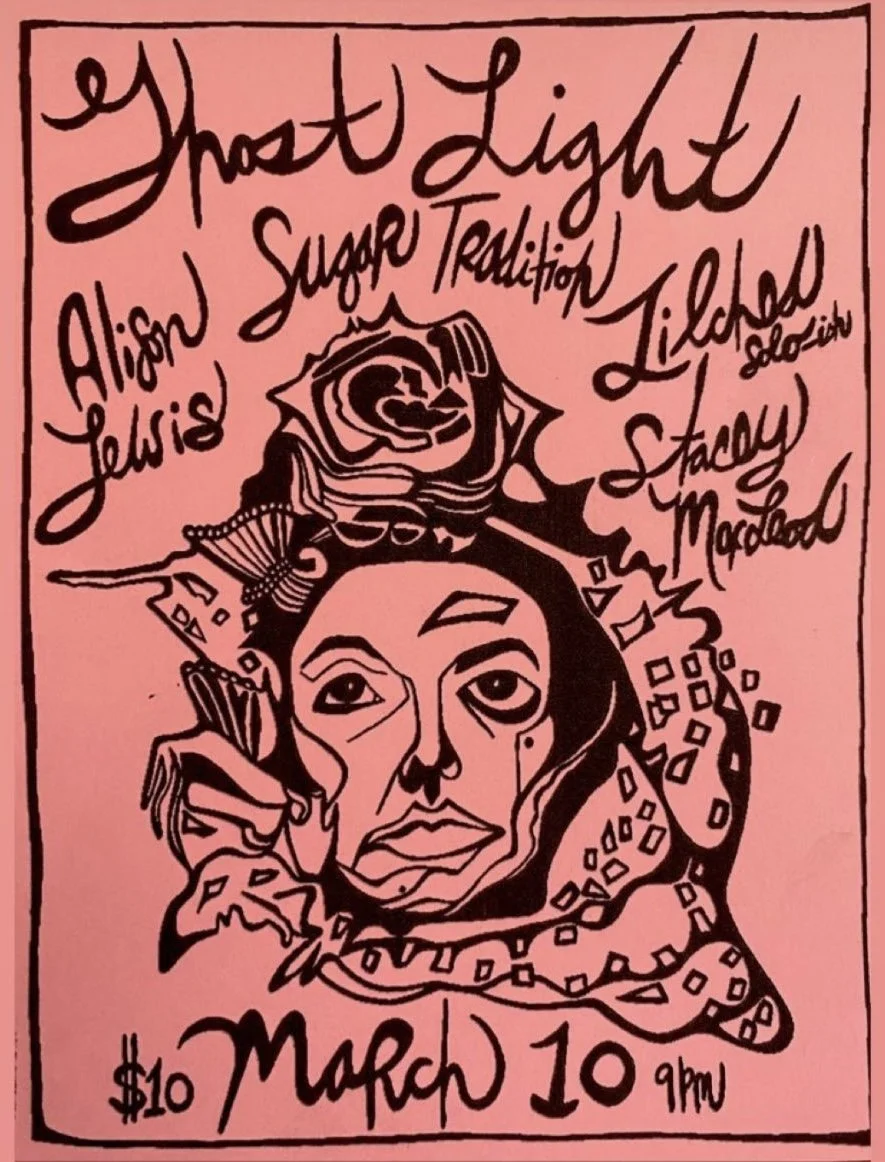 Ghost Light
Sugar Tradition
Alison
Lewis
Zilched
solo-ish
Stacey
MacLeod
$10 March 10 9pm